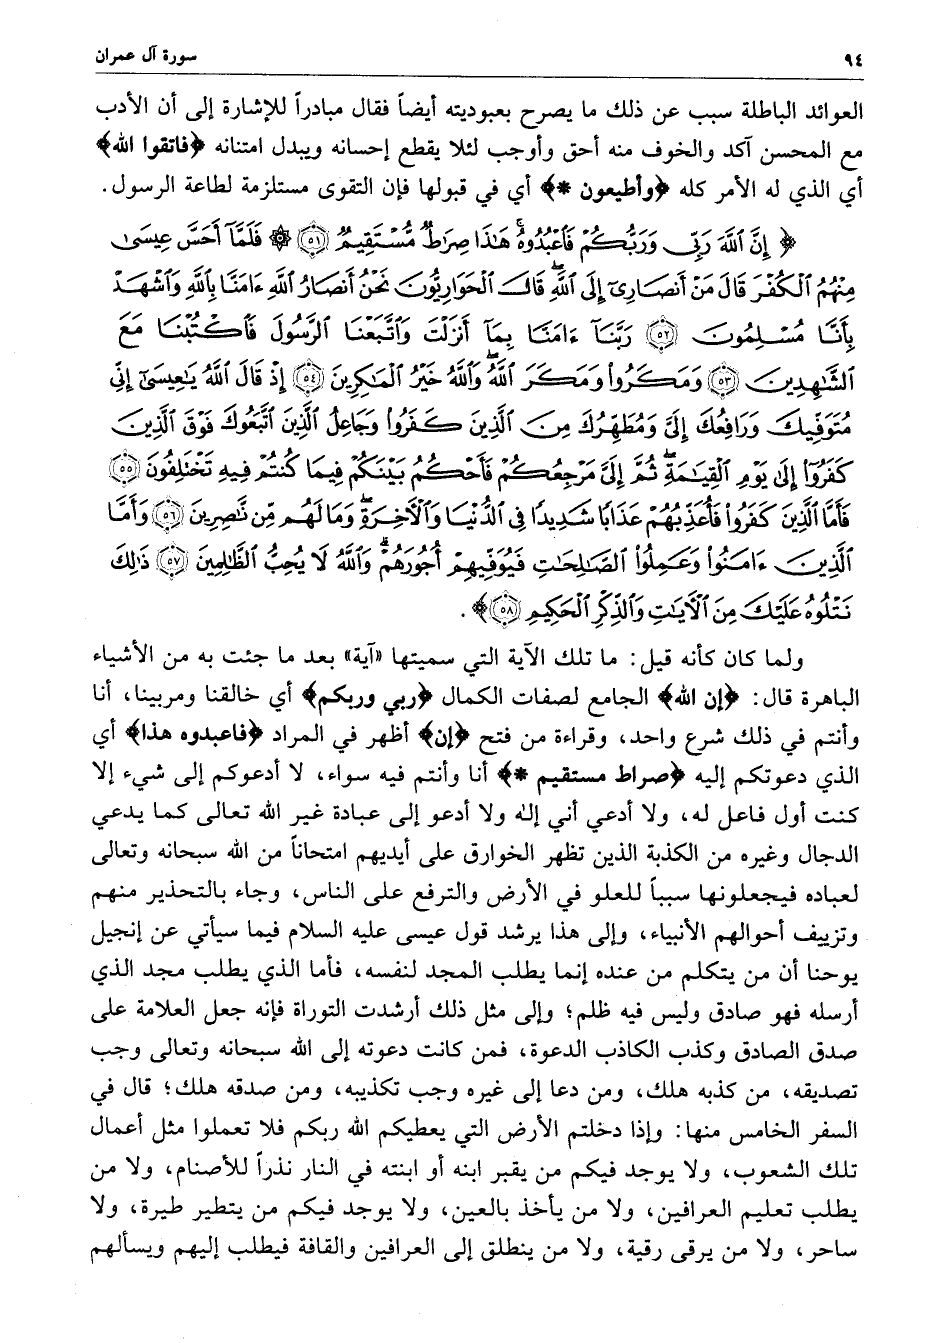 ٩٤ سورة آل عمران
العوائد الباطلة سبب عن ذلك ما يصرح بعبوديته أيضاً فقال مبادراً للإشارة إلى أن الأدب
مع المحسن آكد والخوف منه أحق وأوجب لئلا يقطع إحسانه ويبدل امتنانه ﴿فاتقوا الله﴾
أي الذي له الأمر كله ﴿وأطيعون *﴾ أي في قبولها فإن التقوى مستلزمة لطاعة الرسول.
﴿إِنَّ ٱللَّهَ رَبِّى وَرَبُّكُمْ فَٱعْبُدُوهُۚ هَٰذَا صِرَٰطٌ مُّسْتَقِيمٌ ﴿٥١﴾ ۞ فَلَمَّآ أَحَسَّ عِيسَىٰ
مِنْهُمُ ٱلْكُفْرَ قَالَ مَنْ أَنصَارِىٓ إِلَى ٱللَّهِۖ قَالَ ٱلْحَوَارِيُّونَ نَحْنُ أَنصَارُ ٱللَّهِ ءَامَنَّا بِٱللَّهِ وَٱشْهَدْ
بِأَنَّا مُسْلِمُونَ ﴿٥٢﴾ رَبَّنَآ ءَامَنَّا بِمَآ أَنزَلْتَ وَٱتَّبَعْنَا ٱلرَّسُولَ فَٱكْتُبْنَا مَعَ
ٱلشَّٰهِدِينَ ﴿٥٣﴾ وَمَكَرُوا۟ وَمَكَرَ ٱللَّهُۖ وَٱللَّهُ خَيْرُ ٱلْمَٰكِرِينَ ﴿٥٤﴾ إِذْ قَالَ ٱللَّهُ يَٰعِيسَىٰٓ إِنِّى
مُتَوَفِّيكَ وَرَافِعُكَ إِلَىَّ وَمُطَهِّرُكَ مِنَ ٱلَّذِينَ كَفَرُوا۟ وَجَاعِلُ ٱلَّذِينَ ٱتَّبَعُوكَ فَوْقَ ٱلَّذِينَ
كَفَرُوٓا۟ إِلَىٰ يَوْمِ ٱلْقِيَٰمَةِۖ ثُمَّ إِلَىَّ مَرْجِعُكُمْ فَأَحْكُمُ بَيْنَكُمْ فِيمَا كُنتُمْ فِيهِ تَخْتَلِفُونَ ﴿٥٥﴾
فَأَمَّا ٱلَّذِينَ كَفَرُوا۟ فَأُعَذِّبُهُمْ عَذَابًا شَدِيدًا فِى ٱلدُّنْيَا وَٱلْءَاخِرَةِ وَمَا لَهُم مِّن نَّٰصِرِينَ ﴿٥٦﴾ وَأَمَّا
ٱلَّذِينَ ءَامَنُوا۟ وَعَمِلُوا۟ ٱلصَّٰلِحَٰتِ فَيُوَفِّيهِمْ أُجُورَهُمْۗ وَٱللَّهُ لَا يُحِبُّ ٱلظَّٰلِمِينَ ﴿٥٧﴾ ذَٰلِكَ
نَتْلُوهُ عَلَيْكَ مِنَ ٱلْءَايَٰتِ وَٱلذِّكْرِ ٱلْحَكِيمِ ﴿٥٨﴾﴾.
ولما كان كأنه قيل: ما تلك الآية التي سميتها «آية» بعد ما جئت به من الأشياء
الباهرة قال: ﴿إن الله﴾ الجامع لصفات الكمال ﴿ربي وربكم﴾ أي خالقنا ومربينا، أنا
وأنتم في ذلك شرع واحد، وقراءة من فتح ﴿إن﴾ أظهر في المراد ﴿فاعبدوه هذا﴾ أي
الذي دعوتكم إليه ﴿صراط مستقيم *﴾ أنا وأنتم فيه سواء، لا أدعوكم إلى شيء إلا
كنت أول فاعل له، ولا أدعي أني إله ولا أدعو إلى عبادة غير الله تعالى كما يدعي
الدجال وغيره من الكذبة الذين تظهر الخوارق على أيديهم امتحاناً من الله سبحانه وتعالى
لعباده فيجعلونها سبباً للعلو في الأرض والترفع على الناس، وجاء بالتحذير منهم
وتزييف أحوالهم الأنبياء، وإلى هذا يرشد قول عيسى عليه السلام فيما سيأتي عن إنجيل
يوحنا أن من يتكلم من عنده إنما يطلب المجد لنفسه، فأما الذي يطلب مجد الذي
أرسله فهو صادق وليس فيه ظلم؛ وإلى مثل ذلك أرشدت التوراة فإنه جعل العلامة على
صدق الصادق وكذب الكاذب الدعوة، فمن كانت دعوته إلى الله سبحانه وتعالى وجب
تصديقه، من كذبه هلك، ومن دعا إلى غيره وجب تكذيبه، ومن صدقه هلك؛ قال في
السفر الخامس منها: وإذا دخلتم الأرض التي يعطيكم الله ربكم فلا تعملوا مثل أعمال
تلك الشعوب، ولا يوجد فيكم من يقبر ابنه أو ابنته في النار نذراً للأصنام، ولا من
يطلب تعليم العرافين، ولا من يأخذ بالعين، ولا يوجد فيكم من يتطير طيرة، ولا
ساحر، ولا من يرقى رقية، ولا من ينطلق إلى العرافين والقافة فيطلب إليهم ويسألهم